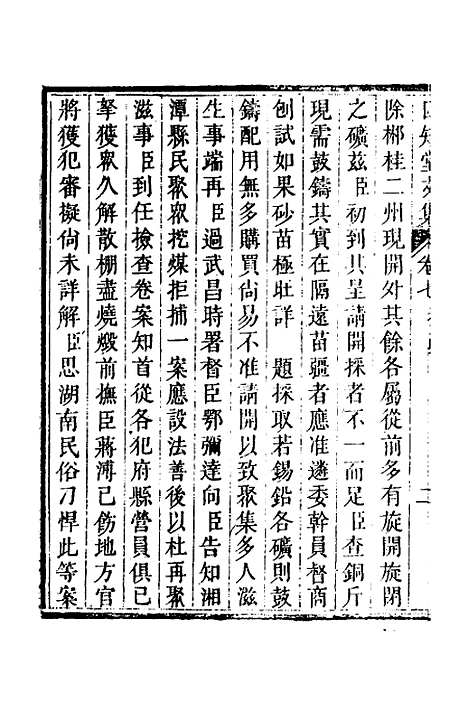 四知堂文集 卷七
除郴桂二州現開外其餘各屬從前多有旋開旋閉
之礦茲臣初到其呈請開採者不一而足臣查銅斤
現需鼓鑄其實在隔遠苗疆者應准遴委幹員督商
刨試如果砂苗極旺詳 題採取若錫鉛各礦則鼓
鑄配用無多購買尚易不准請開以致聚集多人滋
生事端再臣過武昌時署督臣鄂彌達向臣告知湘
潭縣民聚眾挖煤拒捕一案應設法善後以杜再聚
滋事臣到任檢查卷案知首從各犯府縣營員俱已
拏獲眾久解散棚盡燒燬前撫臣蔣溥已飭地方官
將獲犯審擬尚未詳解臣思湖南民俗刁悍此等案